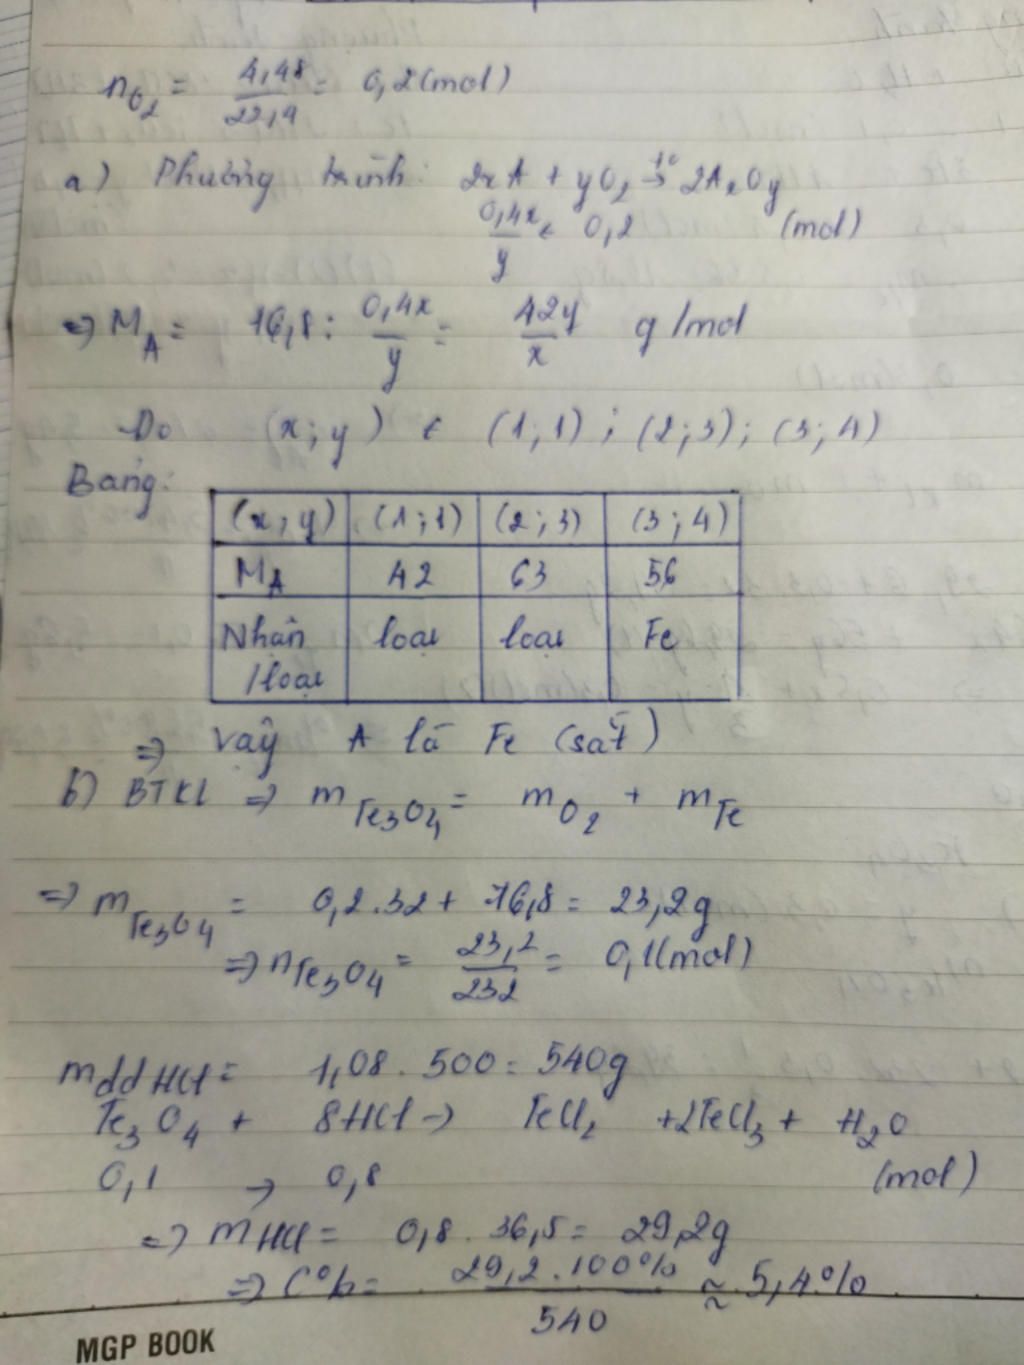 nO2 = 4,48/22,4 = 0,2(mol)
a) Phương trình: 2xA + yO2 t°→ 2AxOy
0,4x/y ← 0,2 (mol)
=> MA = 16,8 : 0,4x/y = 42y/x g/mol
Do (x;y) ∈ (1;1); (2;3); (3;4)
Bảng:
(x;y) (1;1) (2;3) (3;4)
MA 42 63 56
Nhận /loại loại loại Fe
=> Vậy A là Fe (sắt)
b) BTKL => mFe3O4 = mO2 + mFe
=> mFe3O4 = 0,2.32 + 16,8 = 23,2g
=> nFe3O4 = 23,2/232 = 0,1(mol)
mddHCl = 1,08.500 = 540g
Fe3O4 + 8HCl -> FeCl2 + 2FeCl3 + H2O
0,1 -> 0,8 (mol)
=> mHCl = 0,8.36,5 = 29,2g
=> C% = 29,2.100%/540 ≈ 5,4%
MGP BOOK